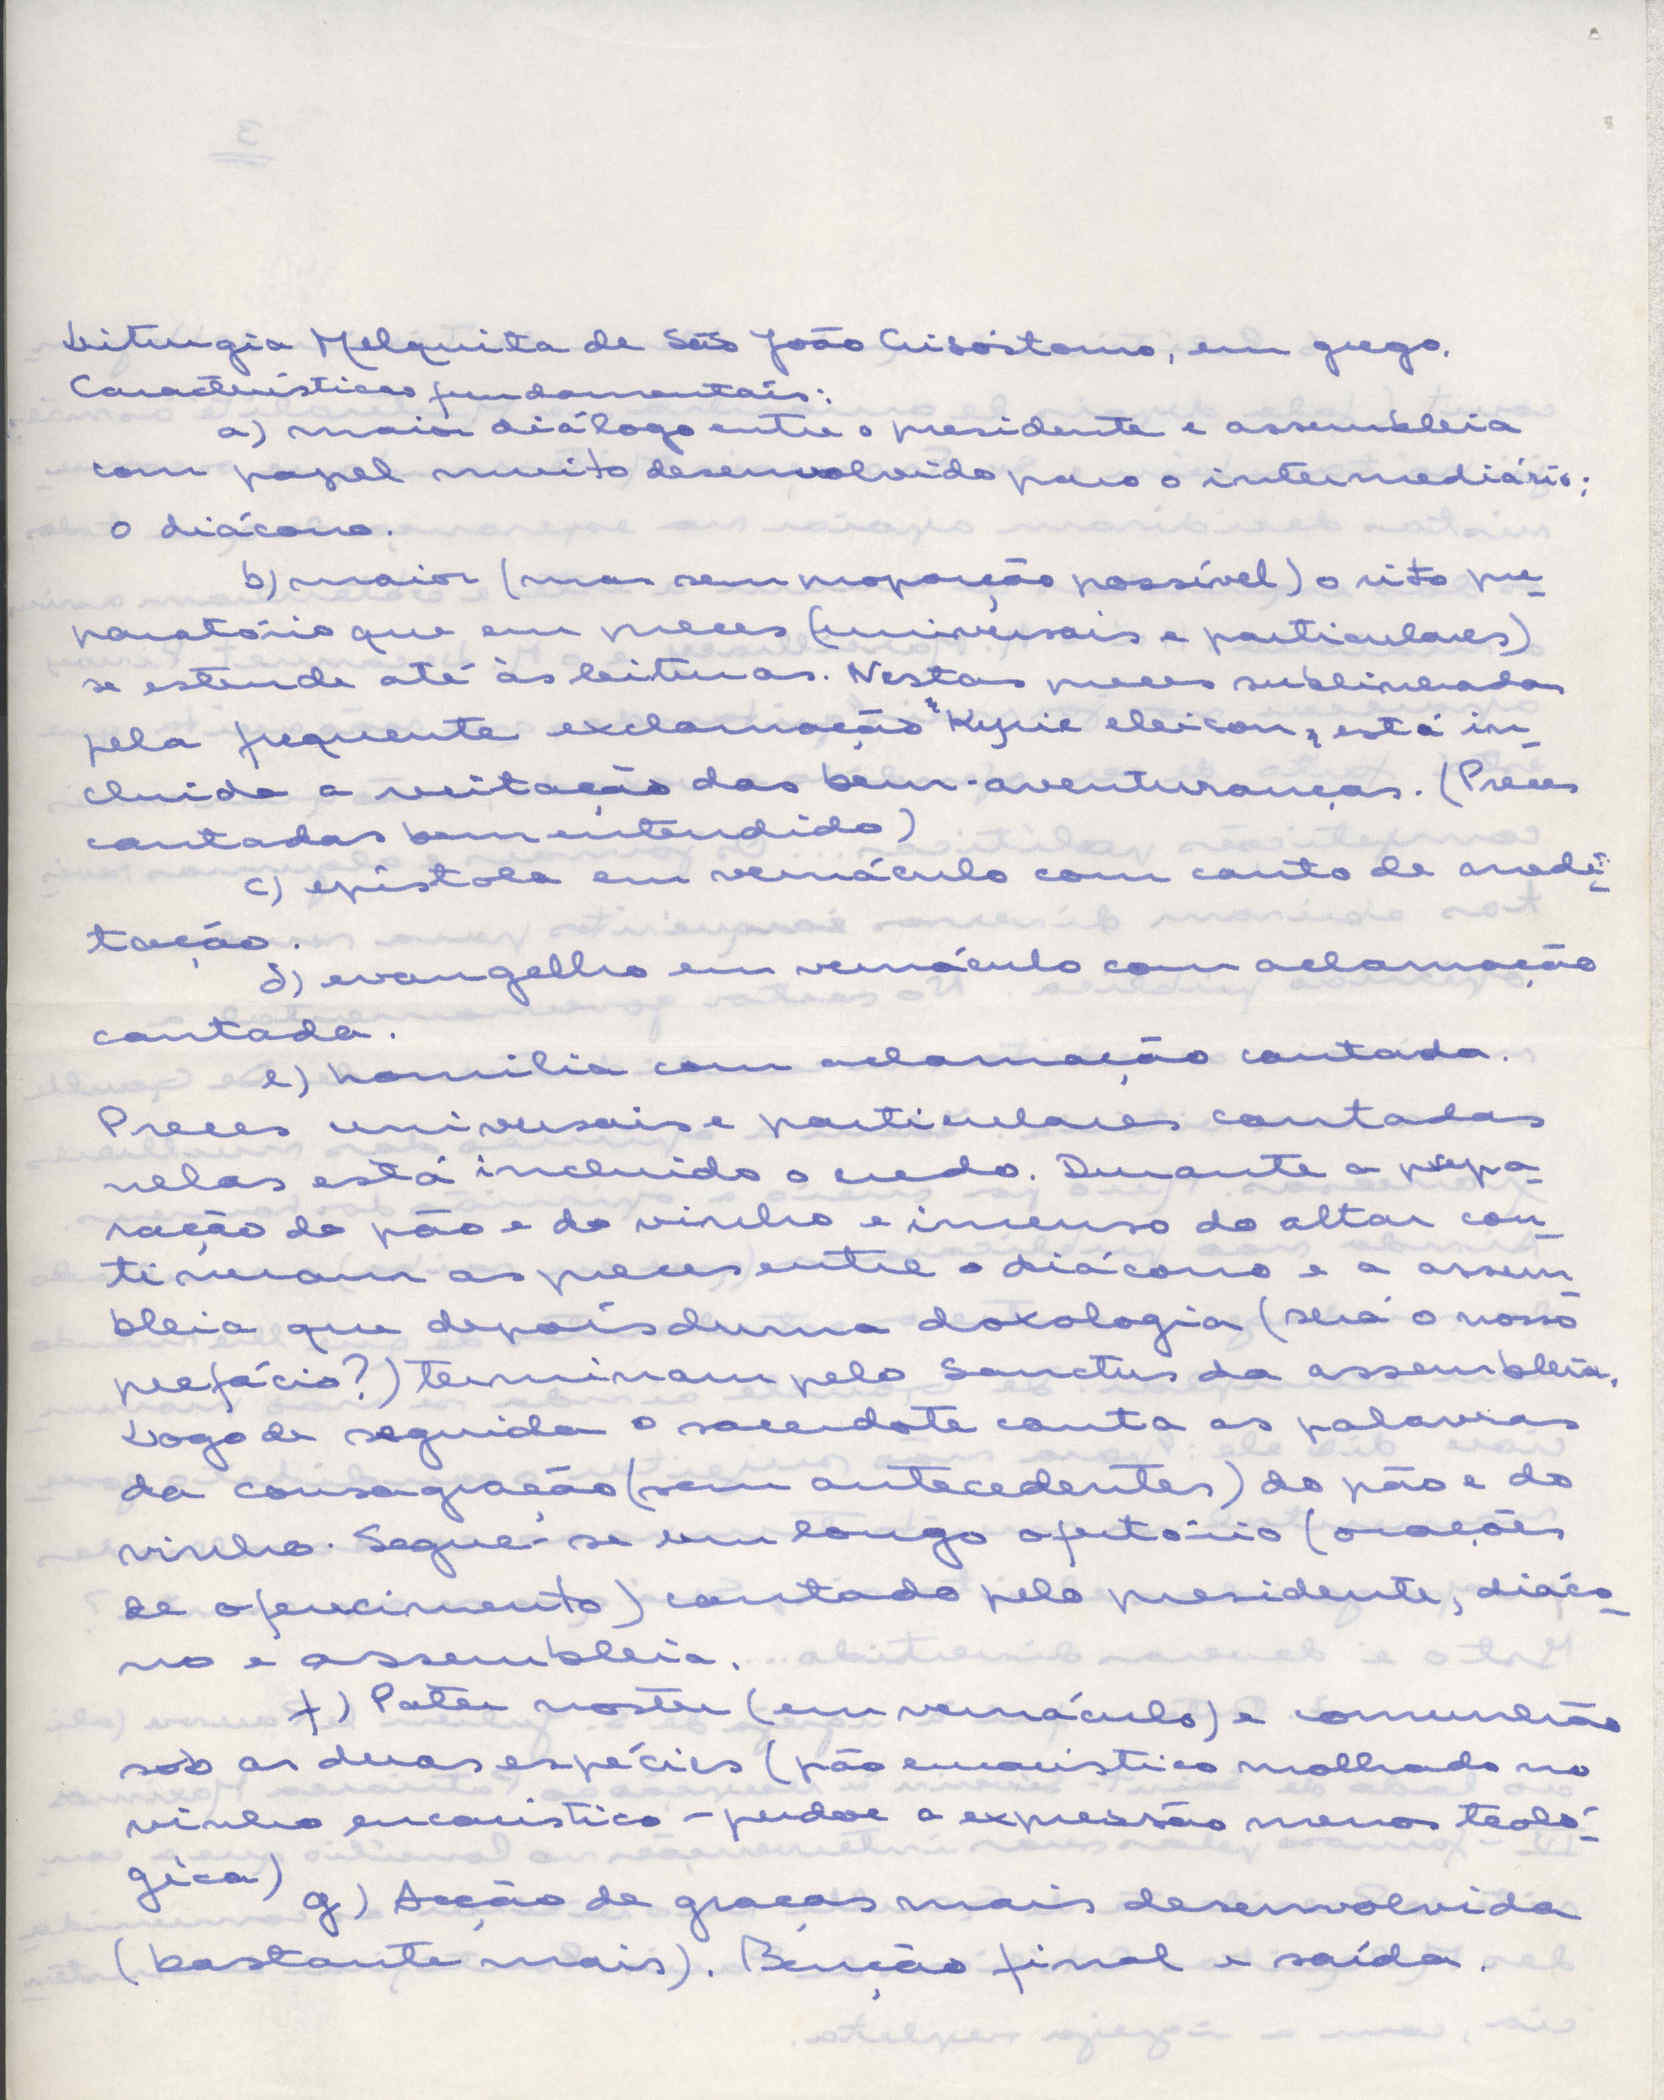 Liturgia Melquita de São João Crisóstomo, em grego.
Características fundamentais:
a) maior diálogo entre o presidente e assembleia
com papel muito desenvolvido para o intermediário:
o diácono.
b) maior (mas sem proporção possível) o rito pre-
paratório que em preces (universais e particulares)
se estende até às leituras. Nestas preces sublinhadas
pela frequente exclamação "Kyrie eleison", está in-
cluida a recitação das bem-aventuranças. (Preces
cantadas bem entendido)
c) epístola em vernáculo com canto de medi-
tação.
d) evangelho em vernáculo com aclamação
cantada.
e) homilia com aclamação cantada.
Preces universais e particulares cantadas
nelas está incluido o credo. Durante a prepa-
ração do pão e do vinho e incenso do altar con-
tinuam as preces entre o diácono e a assem-
bleia que depois duma doxologia (será o nosso
prefácio?) terminam pelo Sanctus da assembleia.
Logo de seguida o sacerdote canta as palavras
da consagração (sem antecedentes) do pão e do
vinho. Segue-se um longo ofertório (orações
de oferecimento) cantado pelo presidente, diáco-
no e assembleia.
f) Pater noster (em vernáculo) e comunhão
sob as duas espécies (pão eucaristico molhado no
vinho eucaristico - perdoe a expressão menos teoló-
gica)
g) Acção de graças mais desenvolvida
(bastante mais). Benção final e saída.